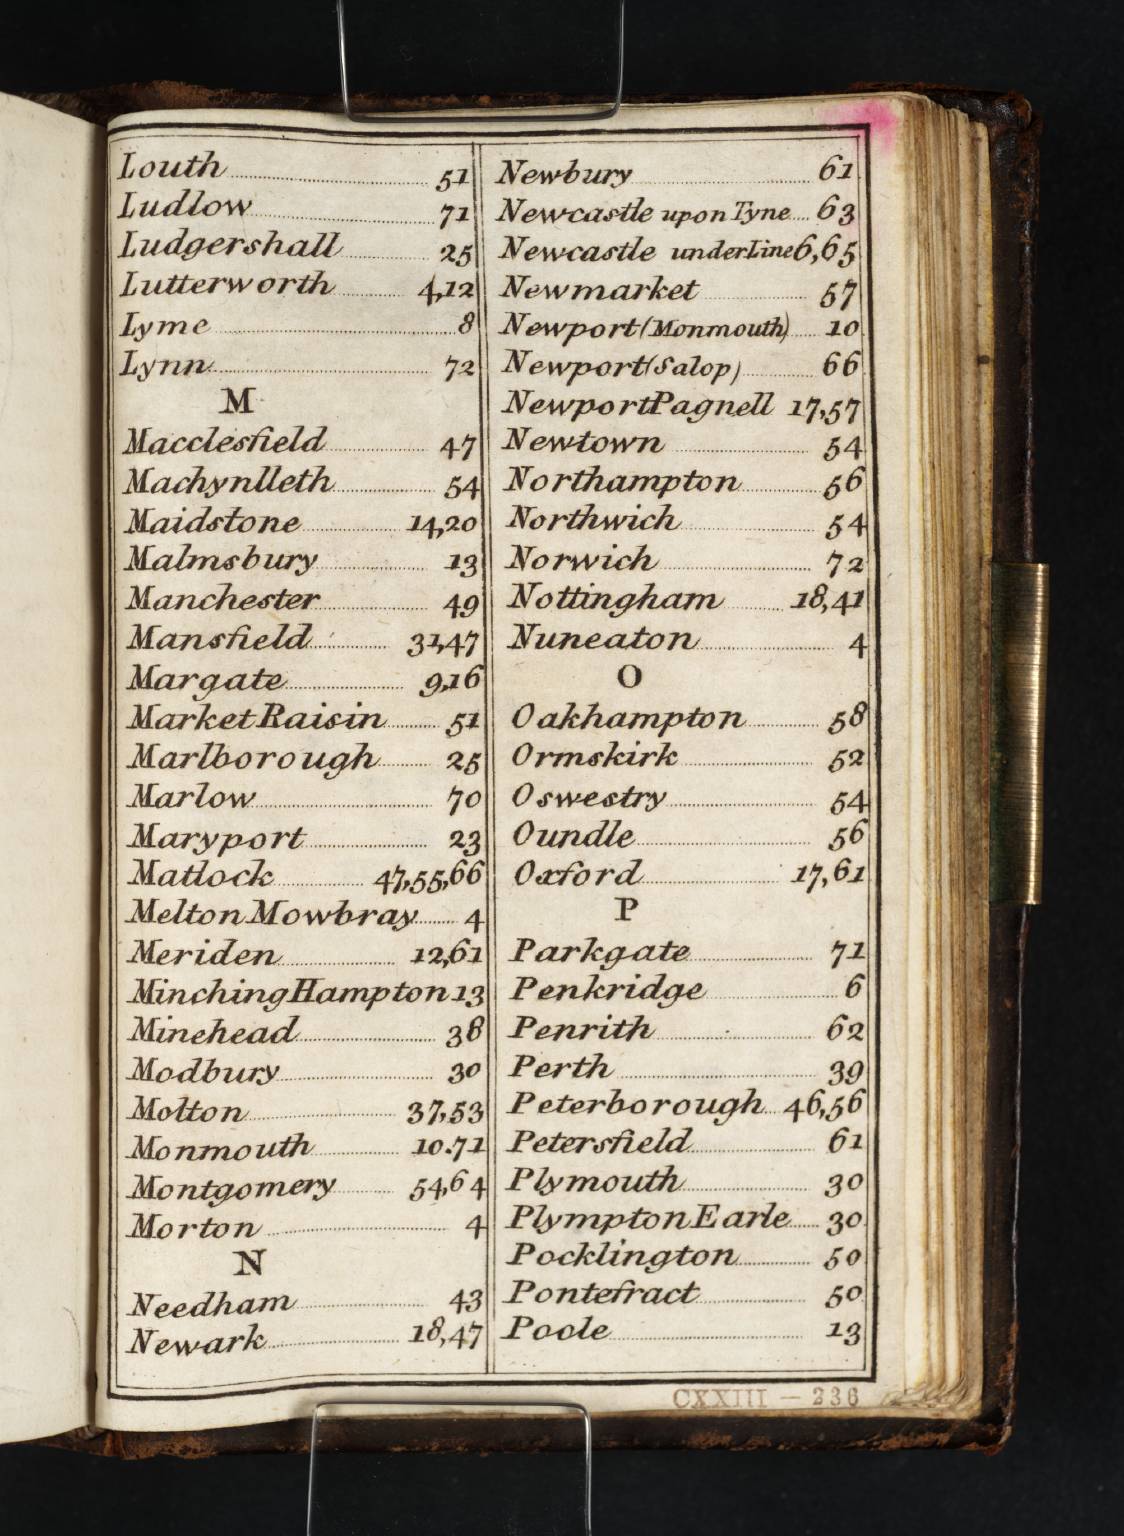 Louth 51
Ludlow 71
Ludgershall 25
Lutterworth 4,12
Lyme 8
Lynn 72
M
Macclesfield 47
Machynlleth 54
Maidstone 14,20
Malmsbury 13
Manchester 49
Mansfield 31,47
Margate 9,16
Market Raisin 51
Marlborough 25
Marlow 70
Maryport 23
Matlock 47,55,66
Melton Mowbray 4
Meriden 12,61
Minching Hampton 13
Minehead 38
Modbury 30
Molton 37,53
Monmouth 10.71
Montgomery 54,64
Morton 4
N
Needham 43
Newark 18,47
Newbury 61
Newcastle upon Tyne 63
Newcastle under Line 6,65
Newmarket 57
Newport (Monmouth) 10
Newport (Salop) 66
Newport Pagnell 17,57
Newtown 54
Northampton 56
Northwich 54
Norwich 72
Nottingham 18,41
Nuneaton 4
O
Oakhampton 58
Ormskirk 52
Oswestry 54
Oundle 56
Oxford 17,61
P
Parkgate 71
Penkridge 6
Penrith 62
Perth 39
Peterborough 46,56
Petersfield 61
Plymouth 30
Plympton Earle 30
Pocklington 50
Pontefract 50
Poole 13
CXXIII — 236